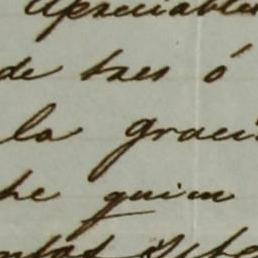 Apreciable
de tres ó
la graci
he quien